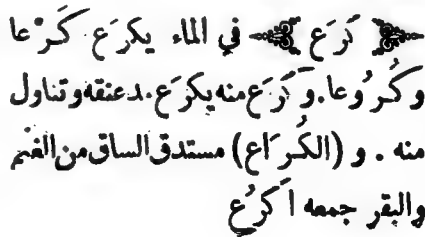 ﴿ كَرَع ﴾ في الماء يكرَع كَرْعا
وكُرُوعا. و كَرَع منه يكرَع. مد عنقه وتناول
منه . و (الكُرَاع) مستدق الساق من الغنم
والبقر جمعه اَكرُع